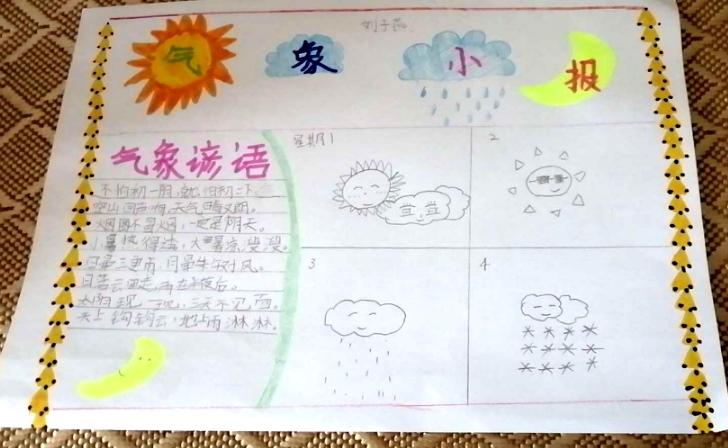 刘子燕
气象小报
气象谚语
星期1
2
不怕初一阴,就怕初二下。
空山回声响,天气晴又朗。
烟囱不冒烟,一定是阴天。
小暑热得透,大暑凉溲溲。
日晕三更雨,月晕午时风。
日落云里走,雨在半夜后。
太阳现一现,三天不见面。
天上钩钩云,地上雨淋淋。
3
4